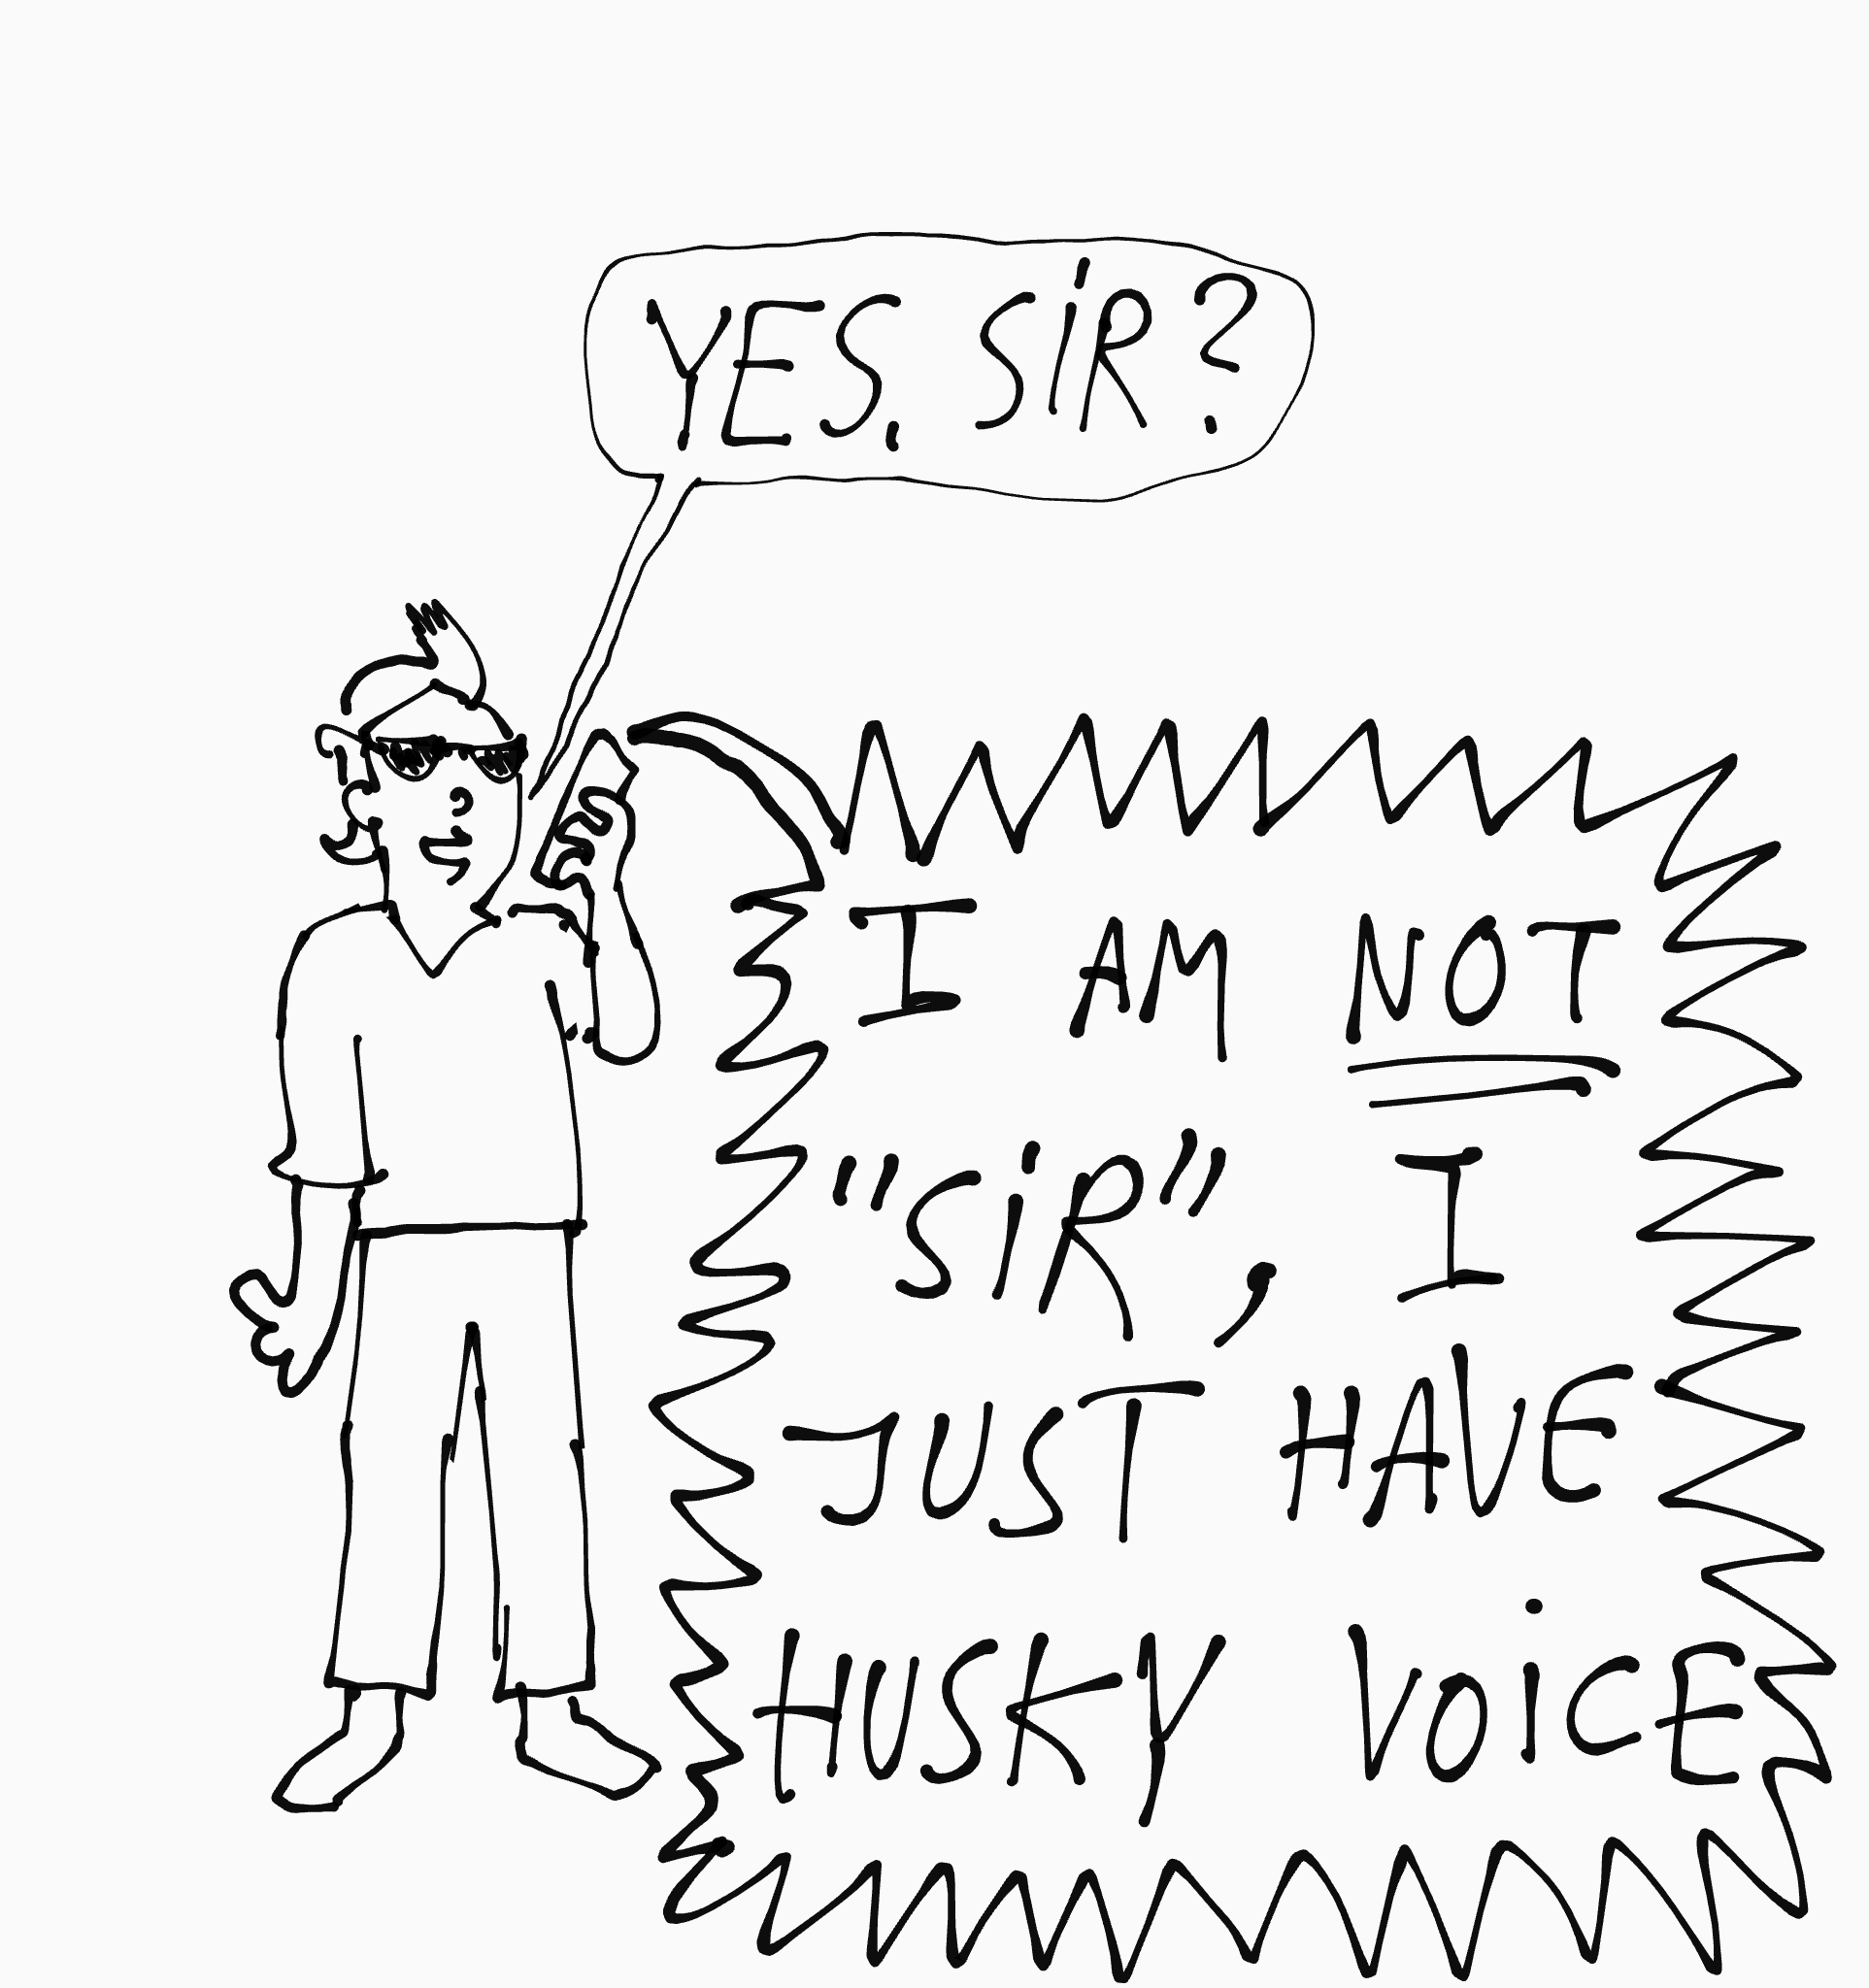 YES, SIR?
I AM NOT
"SIR", I
JUST HAVE
HUSKY VOICES